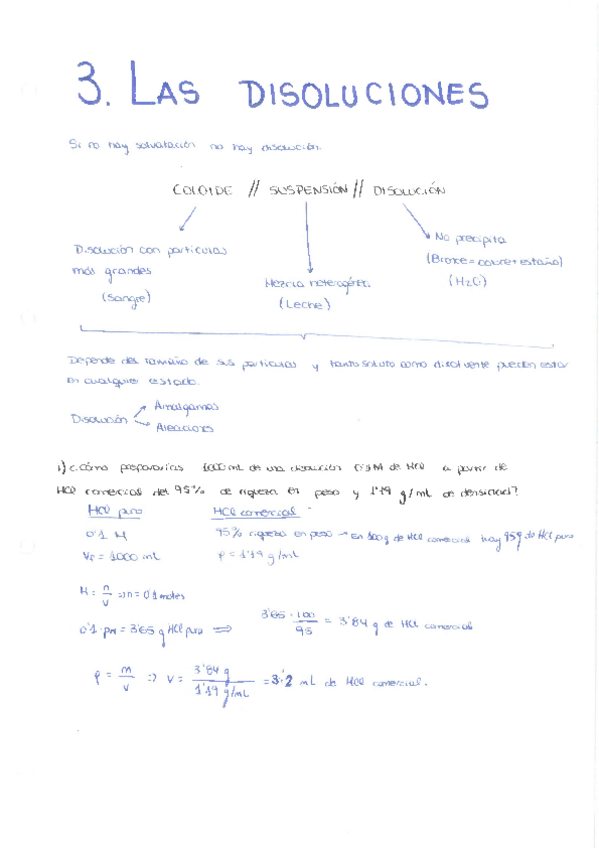 3. LAS DISOLUCIONES
Si no hay solvatación no hay disolución.
COLOIDE // SUSPENSIÓN // DISOLUCIÓN
Disolución con partículas
más grandes
(Sangre)
Mezcla heterogén.
(Leche)
No precipita
(Bronce = cobre + estaño)
(H2O)
Depende del tamaño de sus partículas y tanto soluto como disolvente pueden estar
en cualquier estado.
Disolución
Amalgamas
Aleaciones
1) ¿Cómo prepararías 1000 mL de una disolución 0'1M de HCl a partir de
HCl comercial del 95% de riqueza en peso y 1'19 g/mL de densidad?
HCl puro
0'1 M
Vf = 1000 mL
HCl comercial
95% riqueza en peso → En 100g de HCl comercial hay 95g de HCl puro
ρ = 1'19 g/mL
M = n/v => n = 0'1 moles
0'1 · PM = 3'65 g HCl puro => 3'65 · 100 / 95 = 3'84 g de HCl comercial
ρ = m/v => v = 3'84 g / 1'19 g/mL = 3'2 mL de HCl comercial.